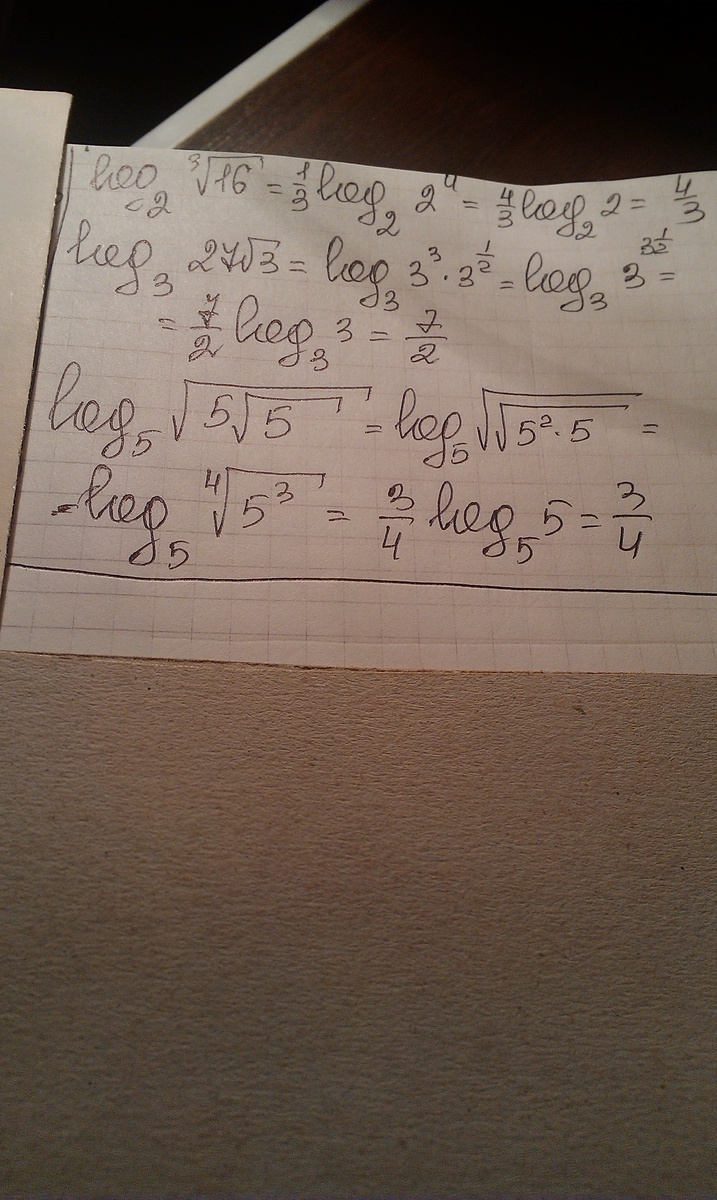 log₂ ∛16 = 1/3 log₂ 2⁴ = 4/3 log₂ 2 = 4/3
log₃ 27√3 = log₃ 3³ · 3^(1/2) = log₃ 3^(3 1/2) =
= 7/2 log₃ 3 = 7/2
log₅ √(5√5) = log₅ √(√(5² · 5)) =
= log₅ ∜(5³) = 3/4 log₅ 5 = 3/4